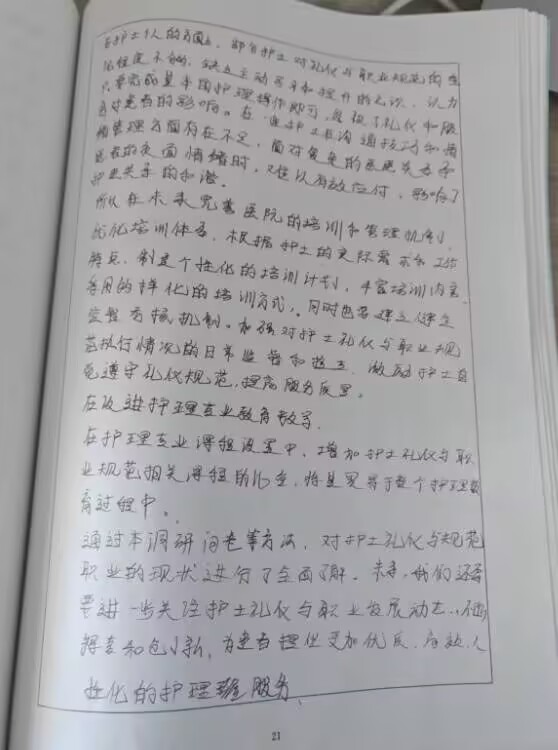 在护士个人的方面,部分护士对礼仪与职业规范的重
视程度不够,缺乏主动学习和提升的意识,认为
只要完成基本的护理操作即可,忽视了礼仪和服
务对患者的影响。在 护士在沟通技巧和情
绪管理方面存在不足,面对复杂的医患关系和
患者的负面情绪时,难以有效应付,影响了
护患关系的和谐。
所以在未来完善医院的培训和管理机制,
优化培训体系,根据护士的实际需求和工作
特点,制定个性化的培训计划,丰富培训内容
采用多样化的培训方式,同时也要建立健全
监督考核机制。加强对护士礼仪与职业规
范执行情况的日常监督和检查,激励护士自
觉遵守礼仪规范,提高服务质量。
在改进护理专业教育教学
在护理专业课程设置中,增加护士礼仪与职
业规范相关课程的比重,将其贯穿于整个护理教
育过程中。
通过本调研问卷等方法,对护士礼仪与规范
职业的现状进行了全面了解。未来,我们还需
要进一步关注护士礼仪与职业发展动态,不断
探索和创新,为患者提供更加优质、高效、人
性化的护理 服务
21